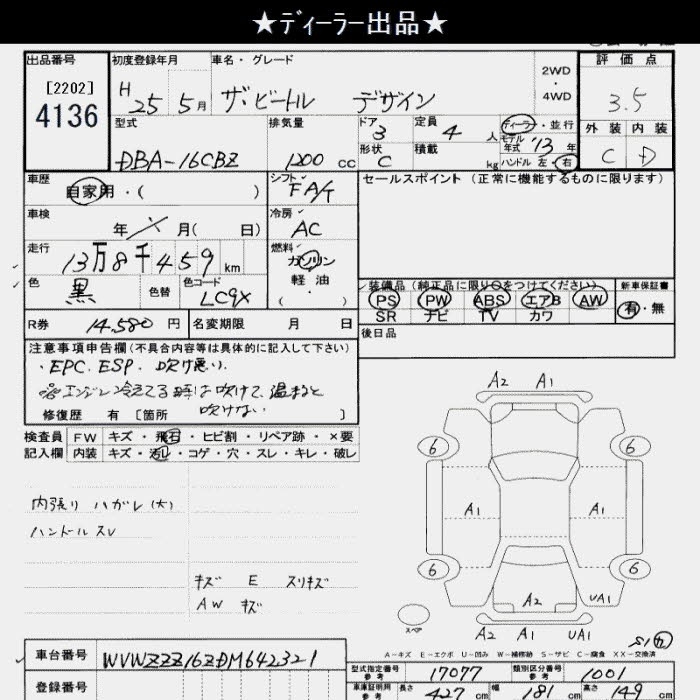 ★ディーラー出品★
出品番号
[2202]
4136
初度登録年月
H 25 5月
車名・グレード
ザ・ビートル デザイン
2WD
・
4WD
評価点
3.5
外装 内装
C D
型式
DBA-16CBZ
排気量
1200 cc
ドア
3
形状
C
定員
4 人
積載
kg
ディーラー・並行
モデル年式 '13年
ハンドル 左・右
車歴
自家用・( )
シフト
FA/T
セールスポイント (正常に機能するものに限ります)
車検
年 月( 日)
冷房
AC
走行
13万8千459km
燃料
ガソリン
軽油
( ・ )
色
黒
色替
色コード
LC9X
装備品(純正品に限り○をつけてください)
PS PW ABS エアB AW
SR ナビ TV カワ
新車保証書
有・無
R券 14,580 円
名変期限 月 日
後日品
注意事項申告欄(不具合内容等は具体的に記入して下さい)
・EPC. ESP. 吹け悪い.
※エンジン冷えてる時は吹けて、温まると
吹けない.
修復歴 有 [箇所 ]
検査員
記入欄
FW キズ・飛石・ヒビ割・リペア跡・×要
内装 キズ・汚れ・コゲ・穴・スレ・キレ・破レ
内張り ハガレ(大)
ハンドル スレ
キズ E スリキズ
AW キズ
A2 A1
6 6
A1 A1
6 6
A2 UA1
スペア
A2 A1 UA1
A-キズ E-エクボ U-凹み W-補修跡 S-サビ C-腐食 XX-交換済
車台番号 WVWZZZ16ZDM642321
登録番号
型式指定番号
参考
17077
類別区分番号
参考
1001
車庫証明用
参考
長さ 427 cm 幅 181 cm 高さ 149 cm